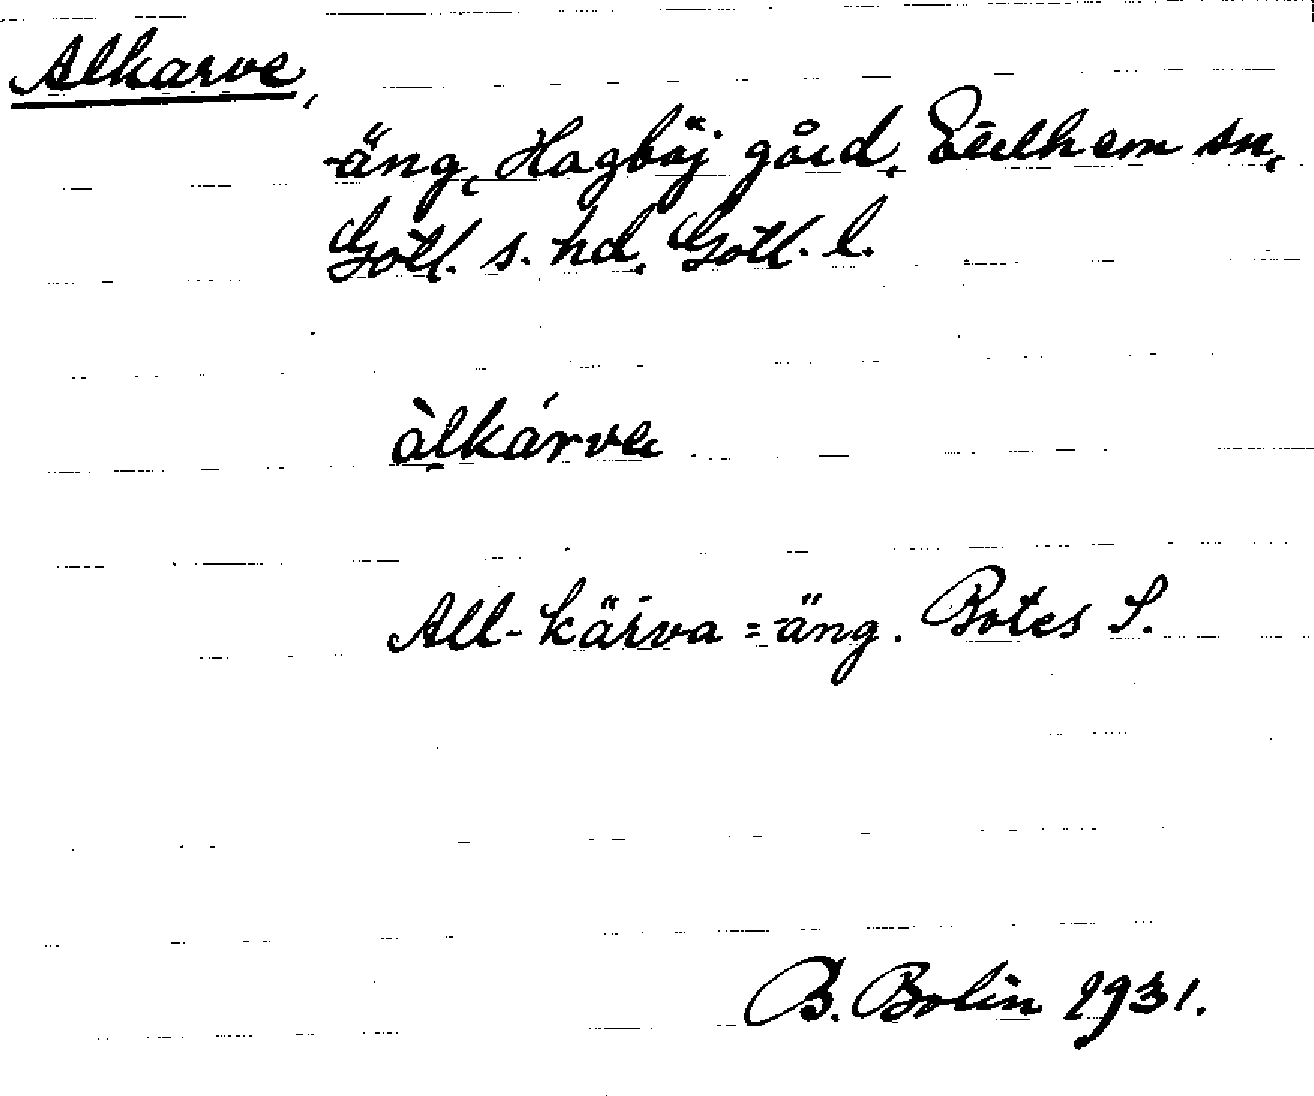 Alkarve,
äng, Hagböj gård, Etelhem sn,
Gotl. s. hd, Gotl. l.
àlkárva
All-kärva = äng. Botes S.
B. Bolin 1931.